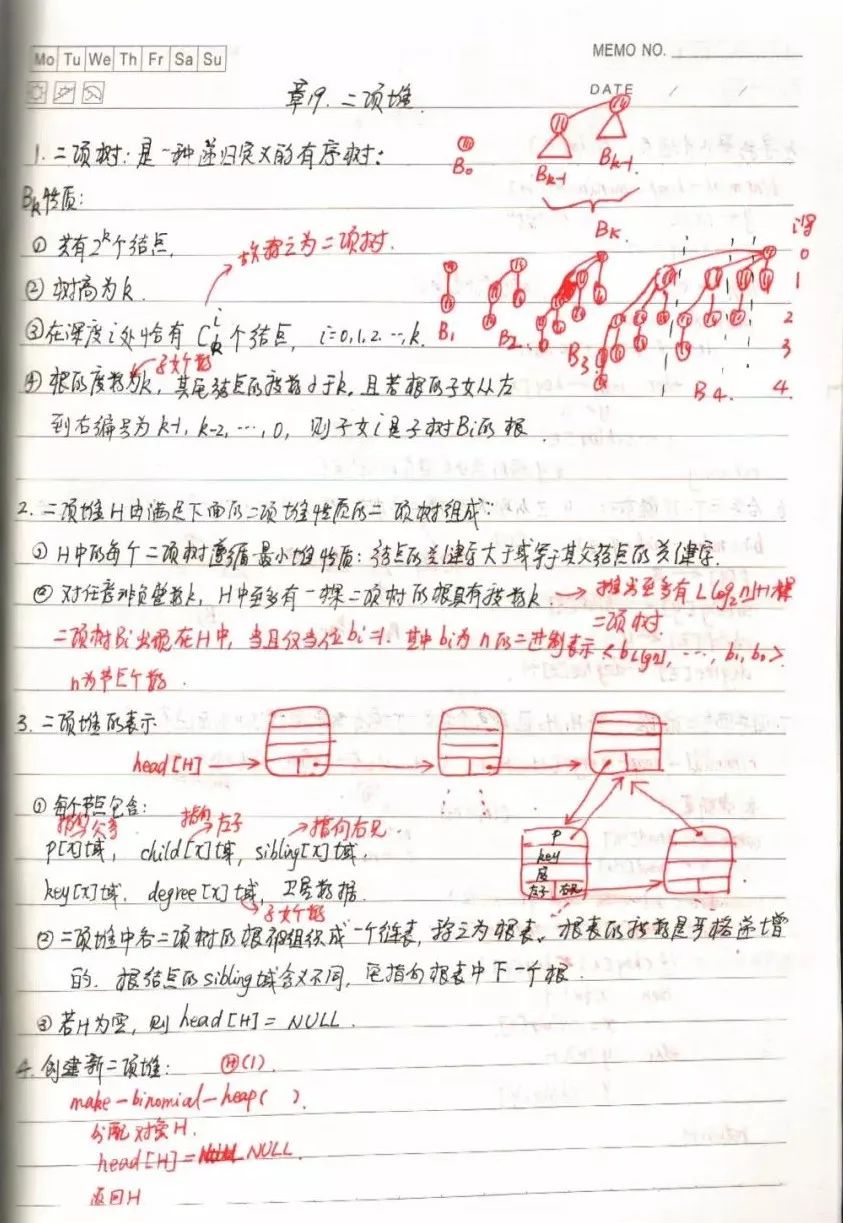 Mo Tu We Th Fr Sa Su
MEMO NO.
DATE / /
章19. 二项堆.
1. 二项树: 是一种递归定义的有序树:
B₀
Bk-1
Bk-1
Bk
Bk性质:
① 共有2^k个结点,
故称之为二项树.
② 树高为k.
③ 在深度i处恰有 C_k^i 个结点, i=0,1,2…,k.
子女个数
④ 根的度数为k, 其它结点的度数小于k. 且若根的子女从左
到右编号为 k-1, k-2, …, 0, 则子女i是子树Bi的根.
B₁
B₂
B₃
B₄.
0
1
2
3
4.
2. 二项堆H由满足下面的二项堆性质的二项树组成:
① H中的每个二项树遵循最小堆性质: 结点的关键字大于或等于其父结点的关键字.
② 对任意非负整数k, H中至多有一棵二项树的根具有度数k. → 推出至多有⌊log₂n⌋+1棵
二项树
二项树Bi出现在H中, 当且仅当位bi=1. 其中bi为n的二进制表示<b⌊lgn⌋, …, b₁, b₀>.
n为节点个数.
3. 二项堆的表示
head[H]
① 每个节点包含:
指向父亲 指向左子 →指向右兄.
p[x]域, child[x]域, sibling[x]域.
key[x]域, degree[x]域, 卫星数据.
子女个数
p
key
度
左子 右兄
② 二项堆中各二项树的根被组织成一个链表, 称之为根表. 根表的度数是严格递增
的. 根结点的sibling域含义不同, 它指向根表中下一个根.
③ 若H为空, 则 head[H] = NULL.
4. 创建新二项堆: Θ(1).
make-binomial-heap( ).
分配对象H.
head[H] = NULL.
返回H